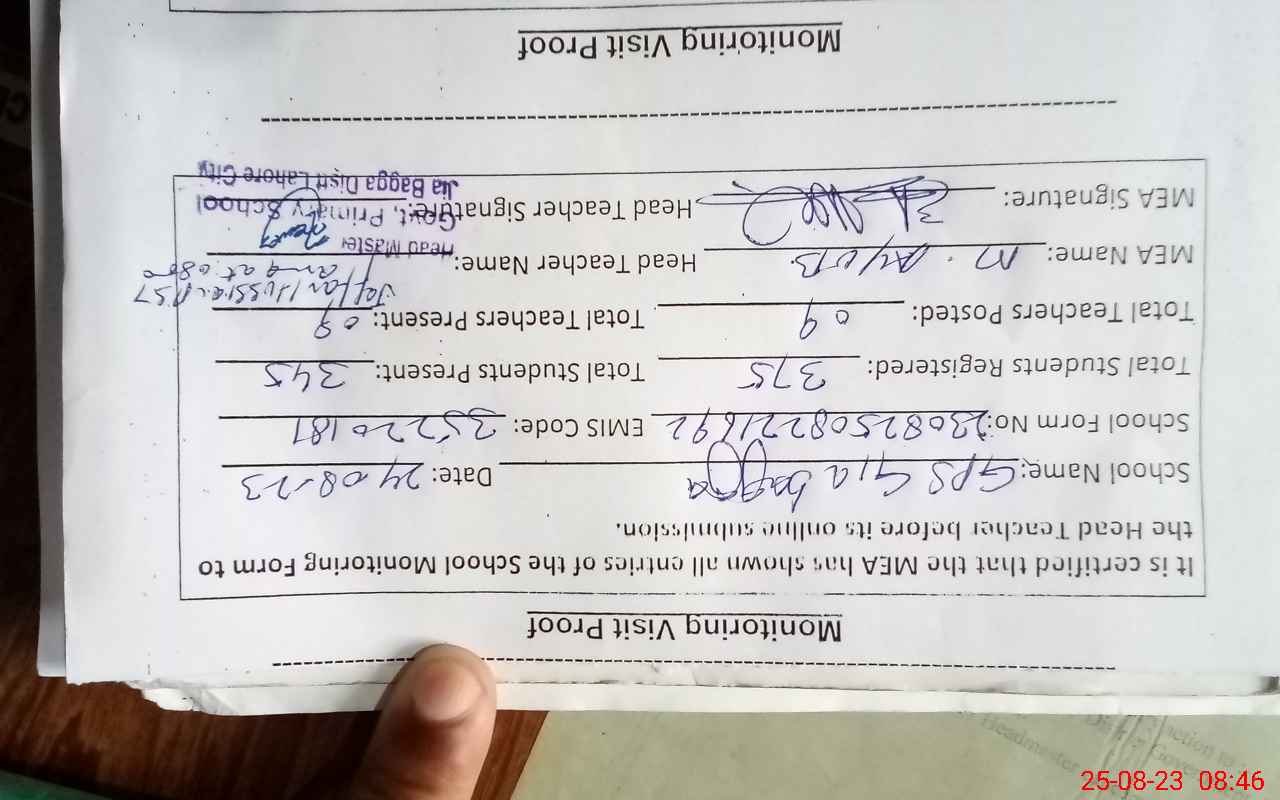 Monitoring Visit Proof
It is certified that the MEA has shown all entries of the School Monitoring Form to
the Head Teacher before its online submission.
School Name: GPS Gia bagga Date: 24-08-23
School Form No: 230825082211692 EMIS Code: 35220181
Total Students Registered: 375 Total Students Present: 345
Total Teachers Posted: 09 Total Teachers Present: 09
Jaffar Hussain PST
arq at 08:00
MEA Name: M. AyUB Head Teacher Name:
Head Master
MEA Signature: Head Teacher Signature:
Govt. Primary School
Jia Bagga Distt Lahore City
Monitoring Visit Proof
Headmaster
Government
25-08-23 08:46